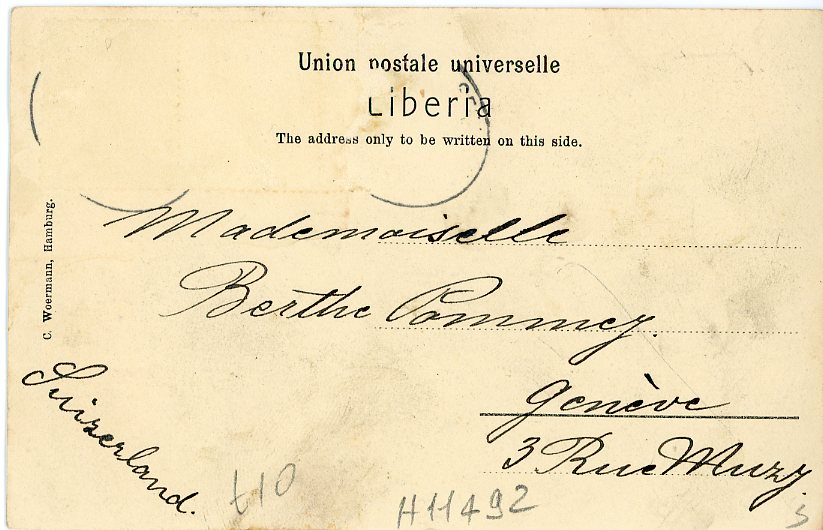 Union postale universelle
Liberia
The address only to be written on this side.
C. Woermann, Hamburg.
Mademoiselle
Berthe Pommey.
Genève
3 Rue Muzy.
Suizerland.
£10
H11492